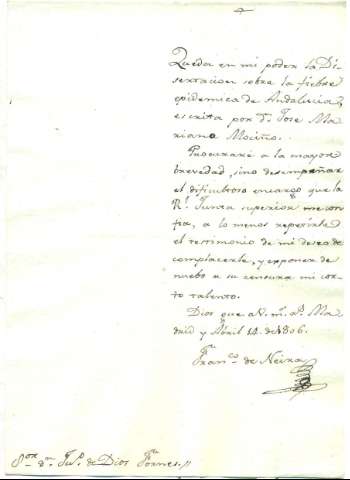 Queda en mi poder la Di-
sertacion sobre la fiebre
epidemica de Andalucia,
escrita por Dn. Jose Ma-
riano Mociño.
Procuraré a la mayor
brevedad, sino desempeñar
el dificultoso encargo que la
Rl. Junta superior me con-
fia, a lo menos repetirle
el testimonio de mi deseo de
complacerle, y exponer de
nuebo a su censura mi cor-
to talento.
Dios gue a V. m. as. Ma-
drid y Abril 14 de 1806.
Franco. de Neira
Sor. Dn. Jun. de Dios